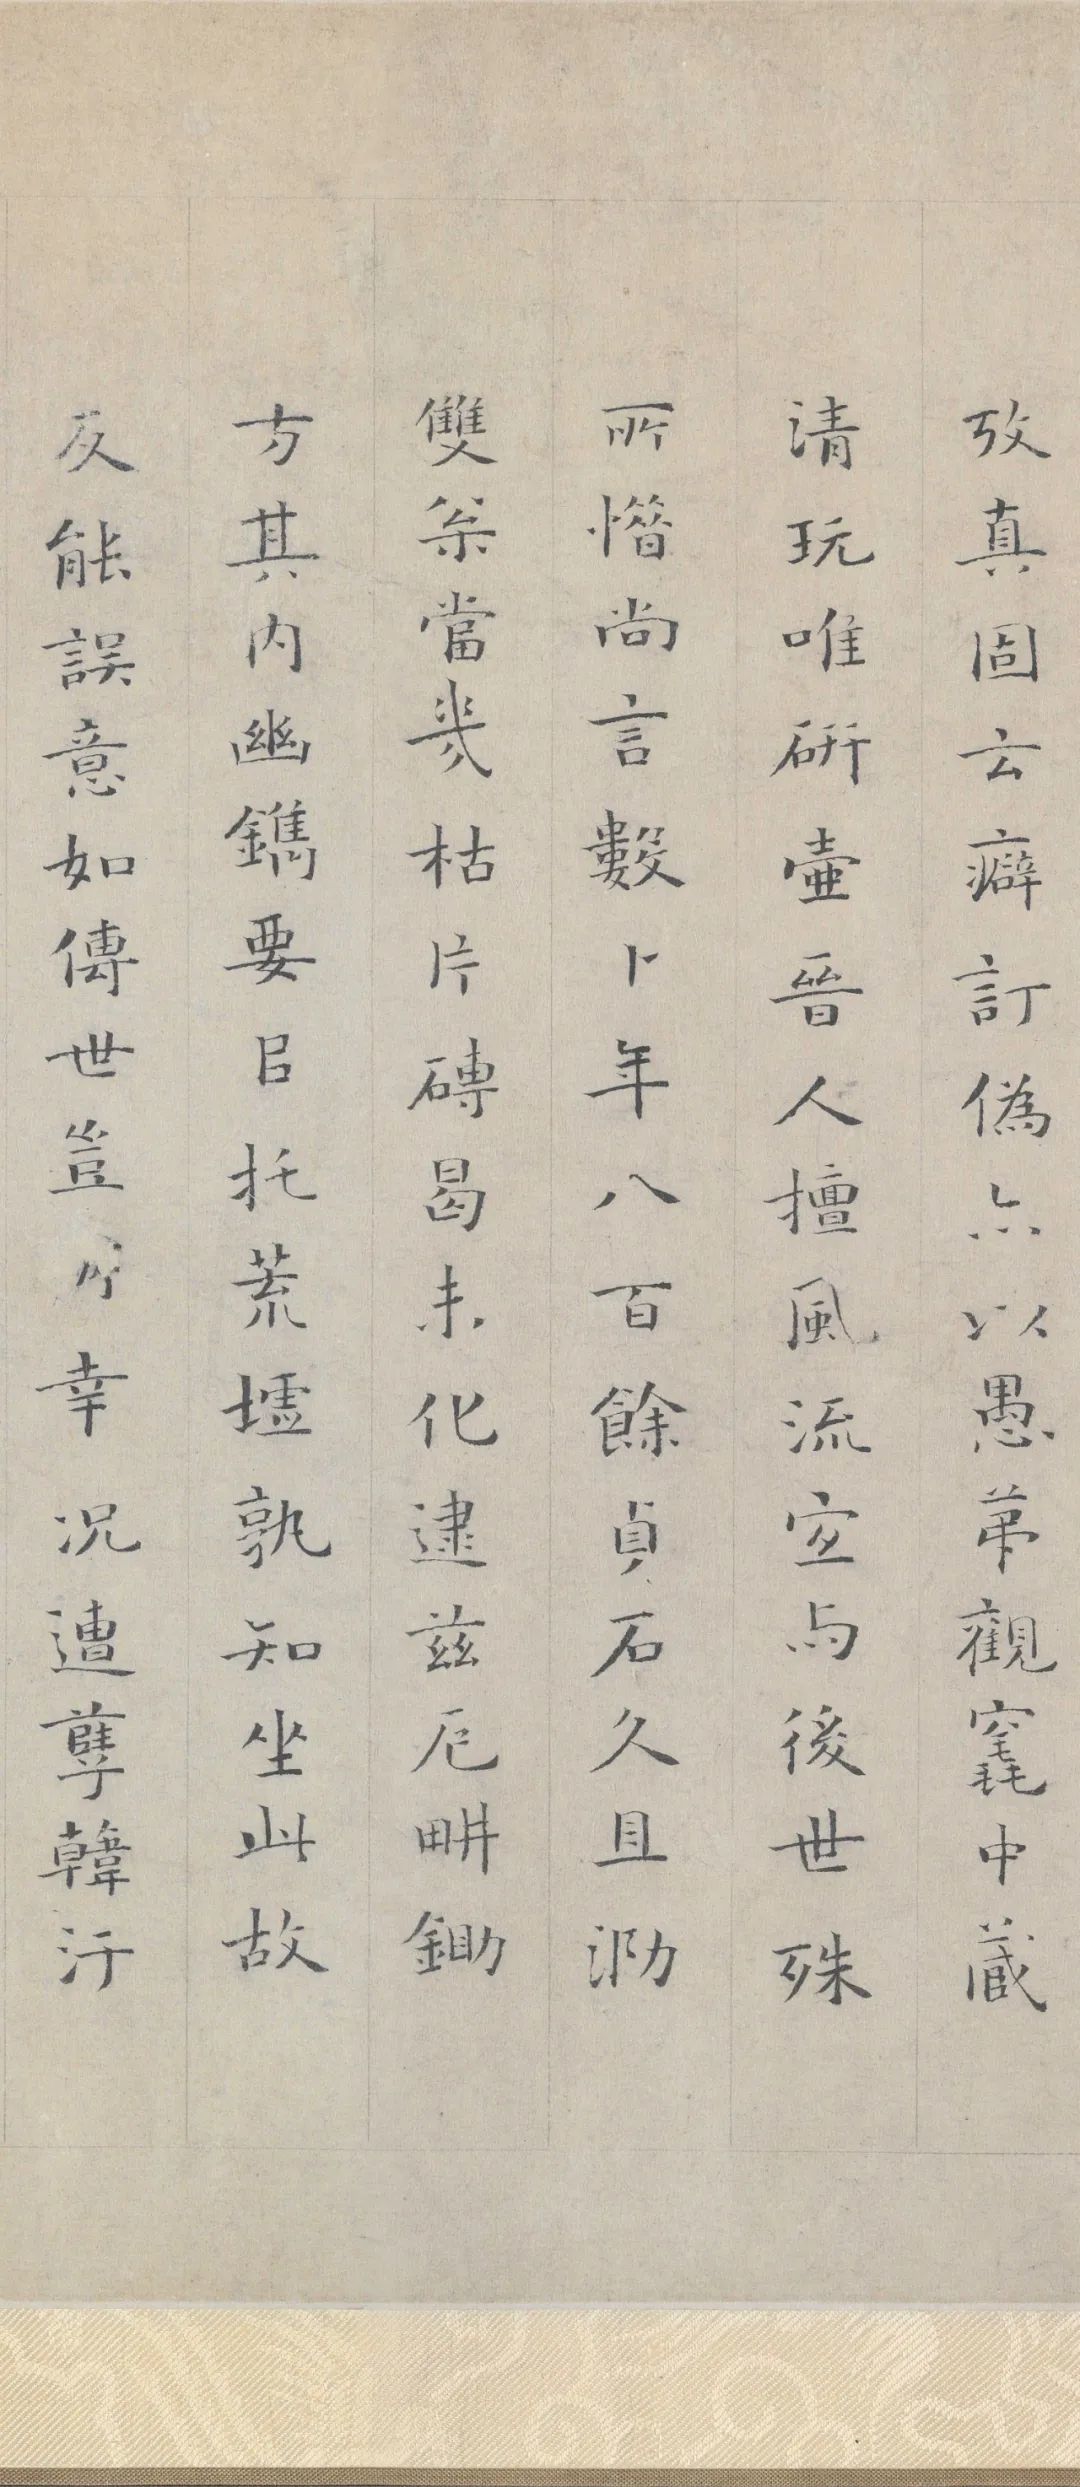 攷真固云癖訂偽亦以愚苐觀毳中蔵
清玩唯硏壷晉人擅風流宜与後世殊
所憯尚言數卜年八百餘貞石久且泐
雙枀當㡬枯片磚曷未化逮兹厄畊鋤
方其内幽鐫要㠯托荒墟孰知坐此故
反能誤意如傳世豈所幸况遭孽韓汙